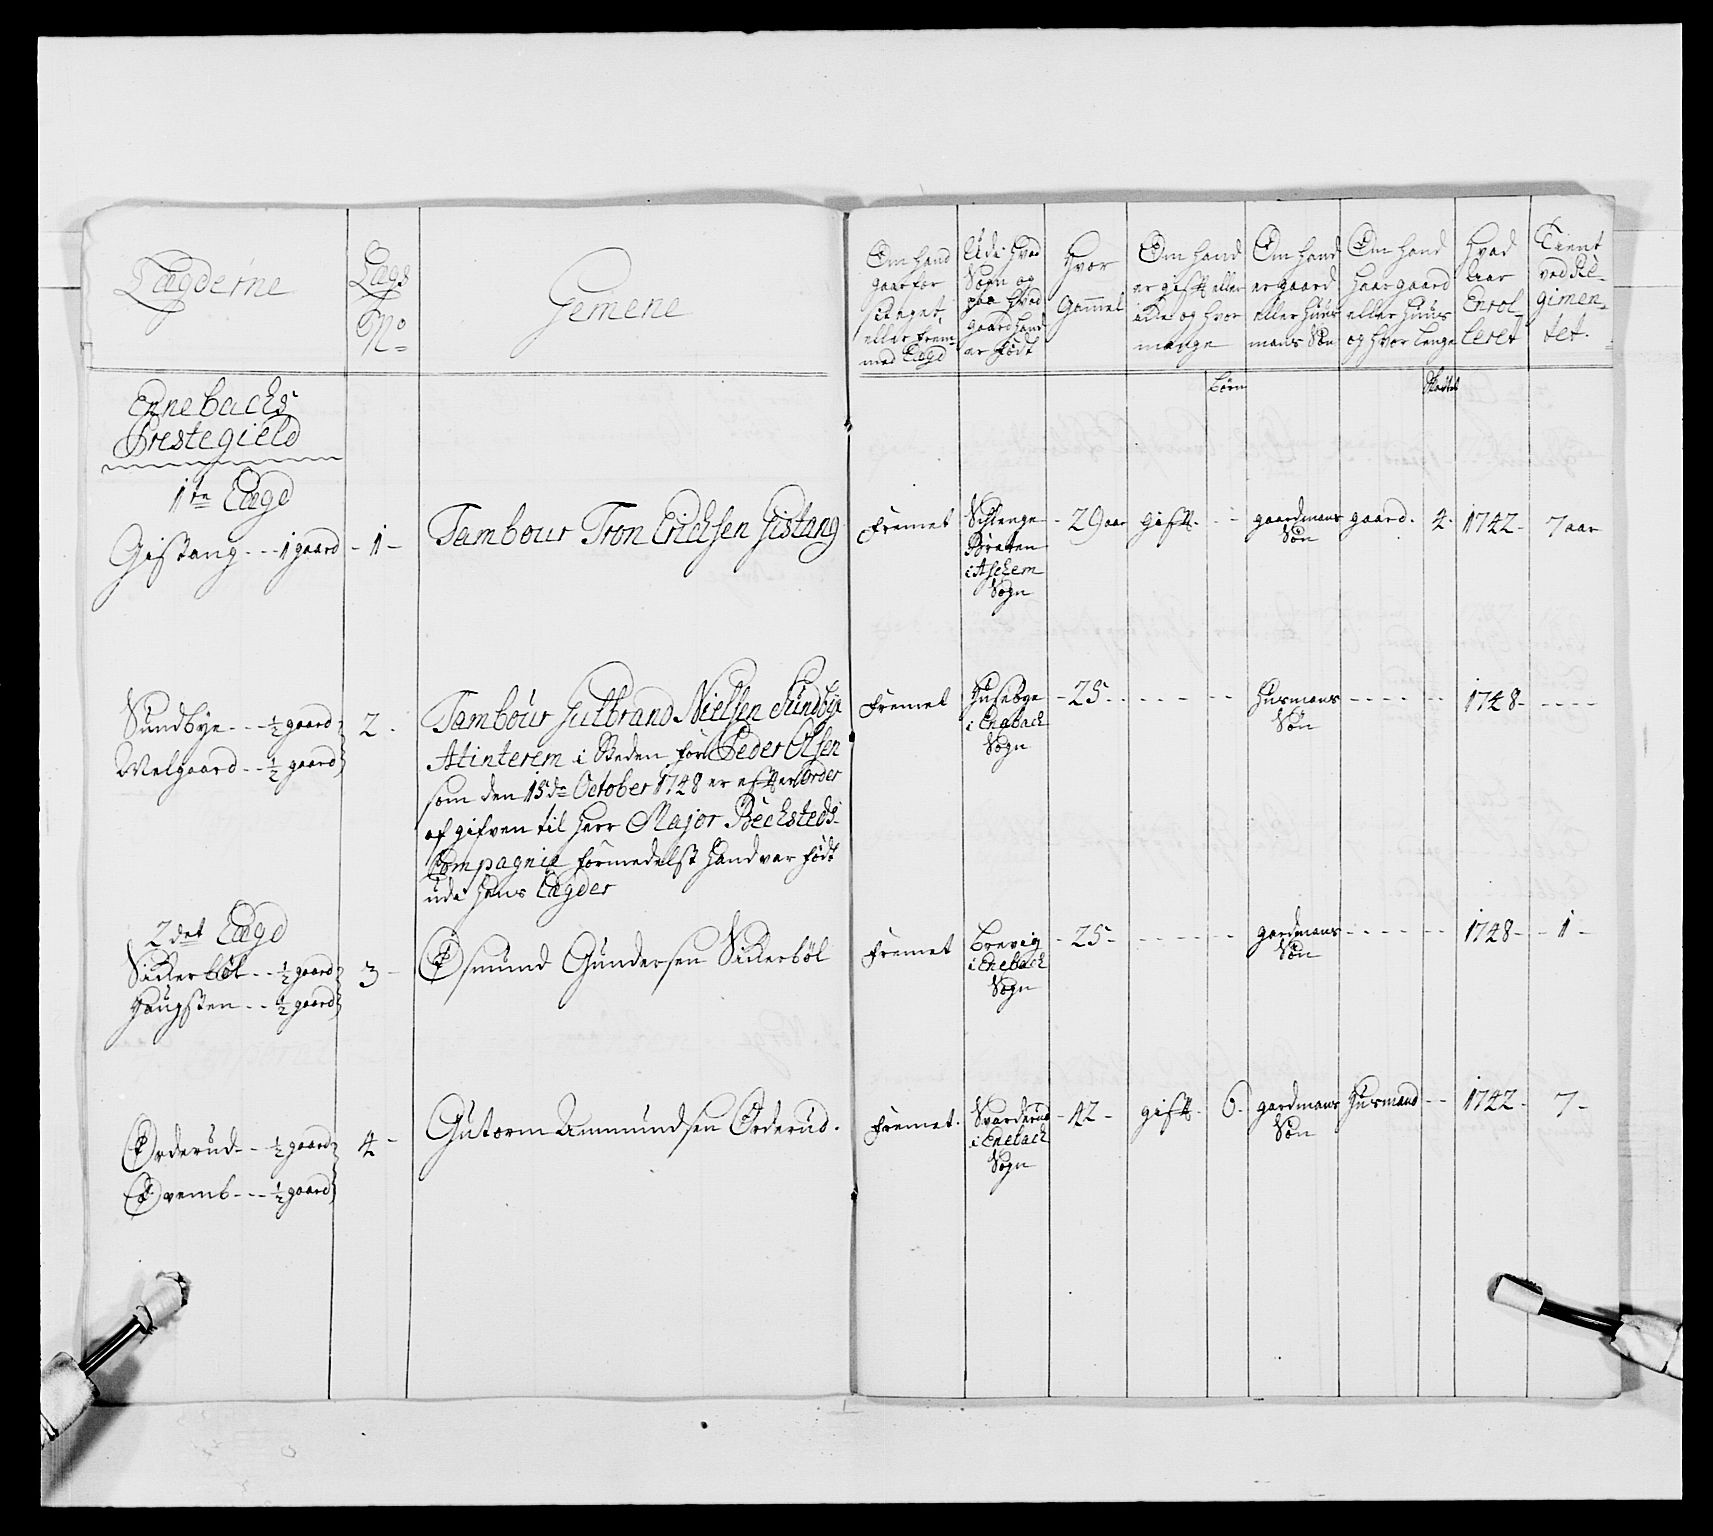 Lægderne
Lægs
No
Gemene
Om hand
gaar for
sleget,
eller frem-
med Lægd
Udi hvad
Sogn og
paa hvad
gaard hand
er født
Hvor
Gammel
Om hand
er gift eller
icke og hvor
mange
Børn
Om hand
er gaard
eller Huus
mans Søn
Om hand
haar gaard
eller Huus
og hvor lenge
Hvad
Aar
Enrol-
leret
Tient
ved Re-
gimen-
tet.
Ennebachs
Prestegield
1te Lægd
Gistang - - - 1 gaard - 1 -
Tambour Tron Erichsen Gistang
Fremet
Schlenge
Braaten
i Aschem
Sogn
- 29 aar
gift. - -
gaardmans
Søn
gaard. 4.
1742 -
7 aar
Sundbye - - - ½ gaard
Melgaard - - ½ gaard
2.
Tambour Gulbrand Nielsen Sundbye
Atinterim i Steden for Peder Olsen
som den 15de October 1748 er efter Order
af gifven til Herr Major Bechsteds
Compagnie formedelst hand var født
udi hans Lægder
Fremet
Husebye
i Enebach
Sogn
- 25 - - - - - -
Husmans
Søn
- - - - - -
1748 - - - - -
2det Lægd
Sickerböl - - ½ gaard
Haugsten - - ½ gaard
3 -
Osmund Gundersen Sickerböl
Fremet
Brevig
i Enebach
Sogn
- 25 - - - - - -
gardmans
Søn
- - - - - -
1748 - - 1 -
Orderud - - ½ gaard
Ovemb - - - ½ gaard
4 -
Gutorm Ammundsen Orderud.
Fremet.
Svarderud
i Enebach
Sogn
- 42 -
gift. 6.
gardmans
Søn
Husmand - -
1742 -
7 -